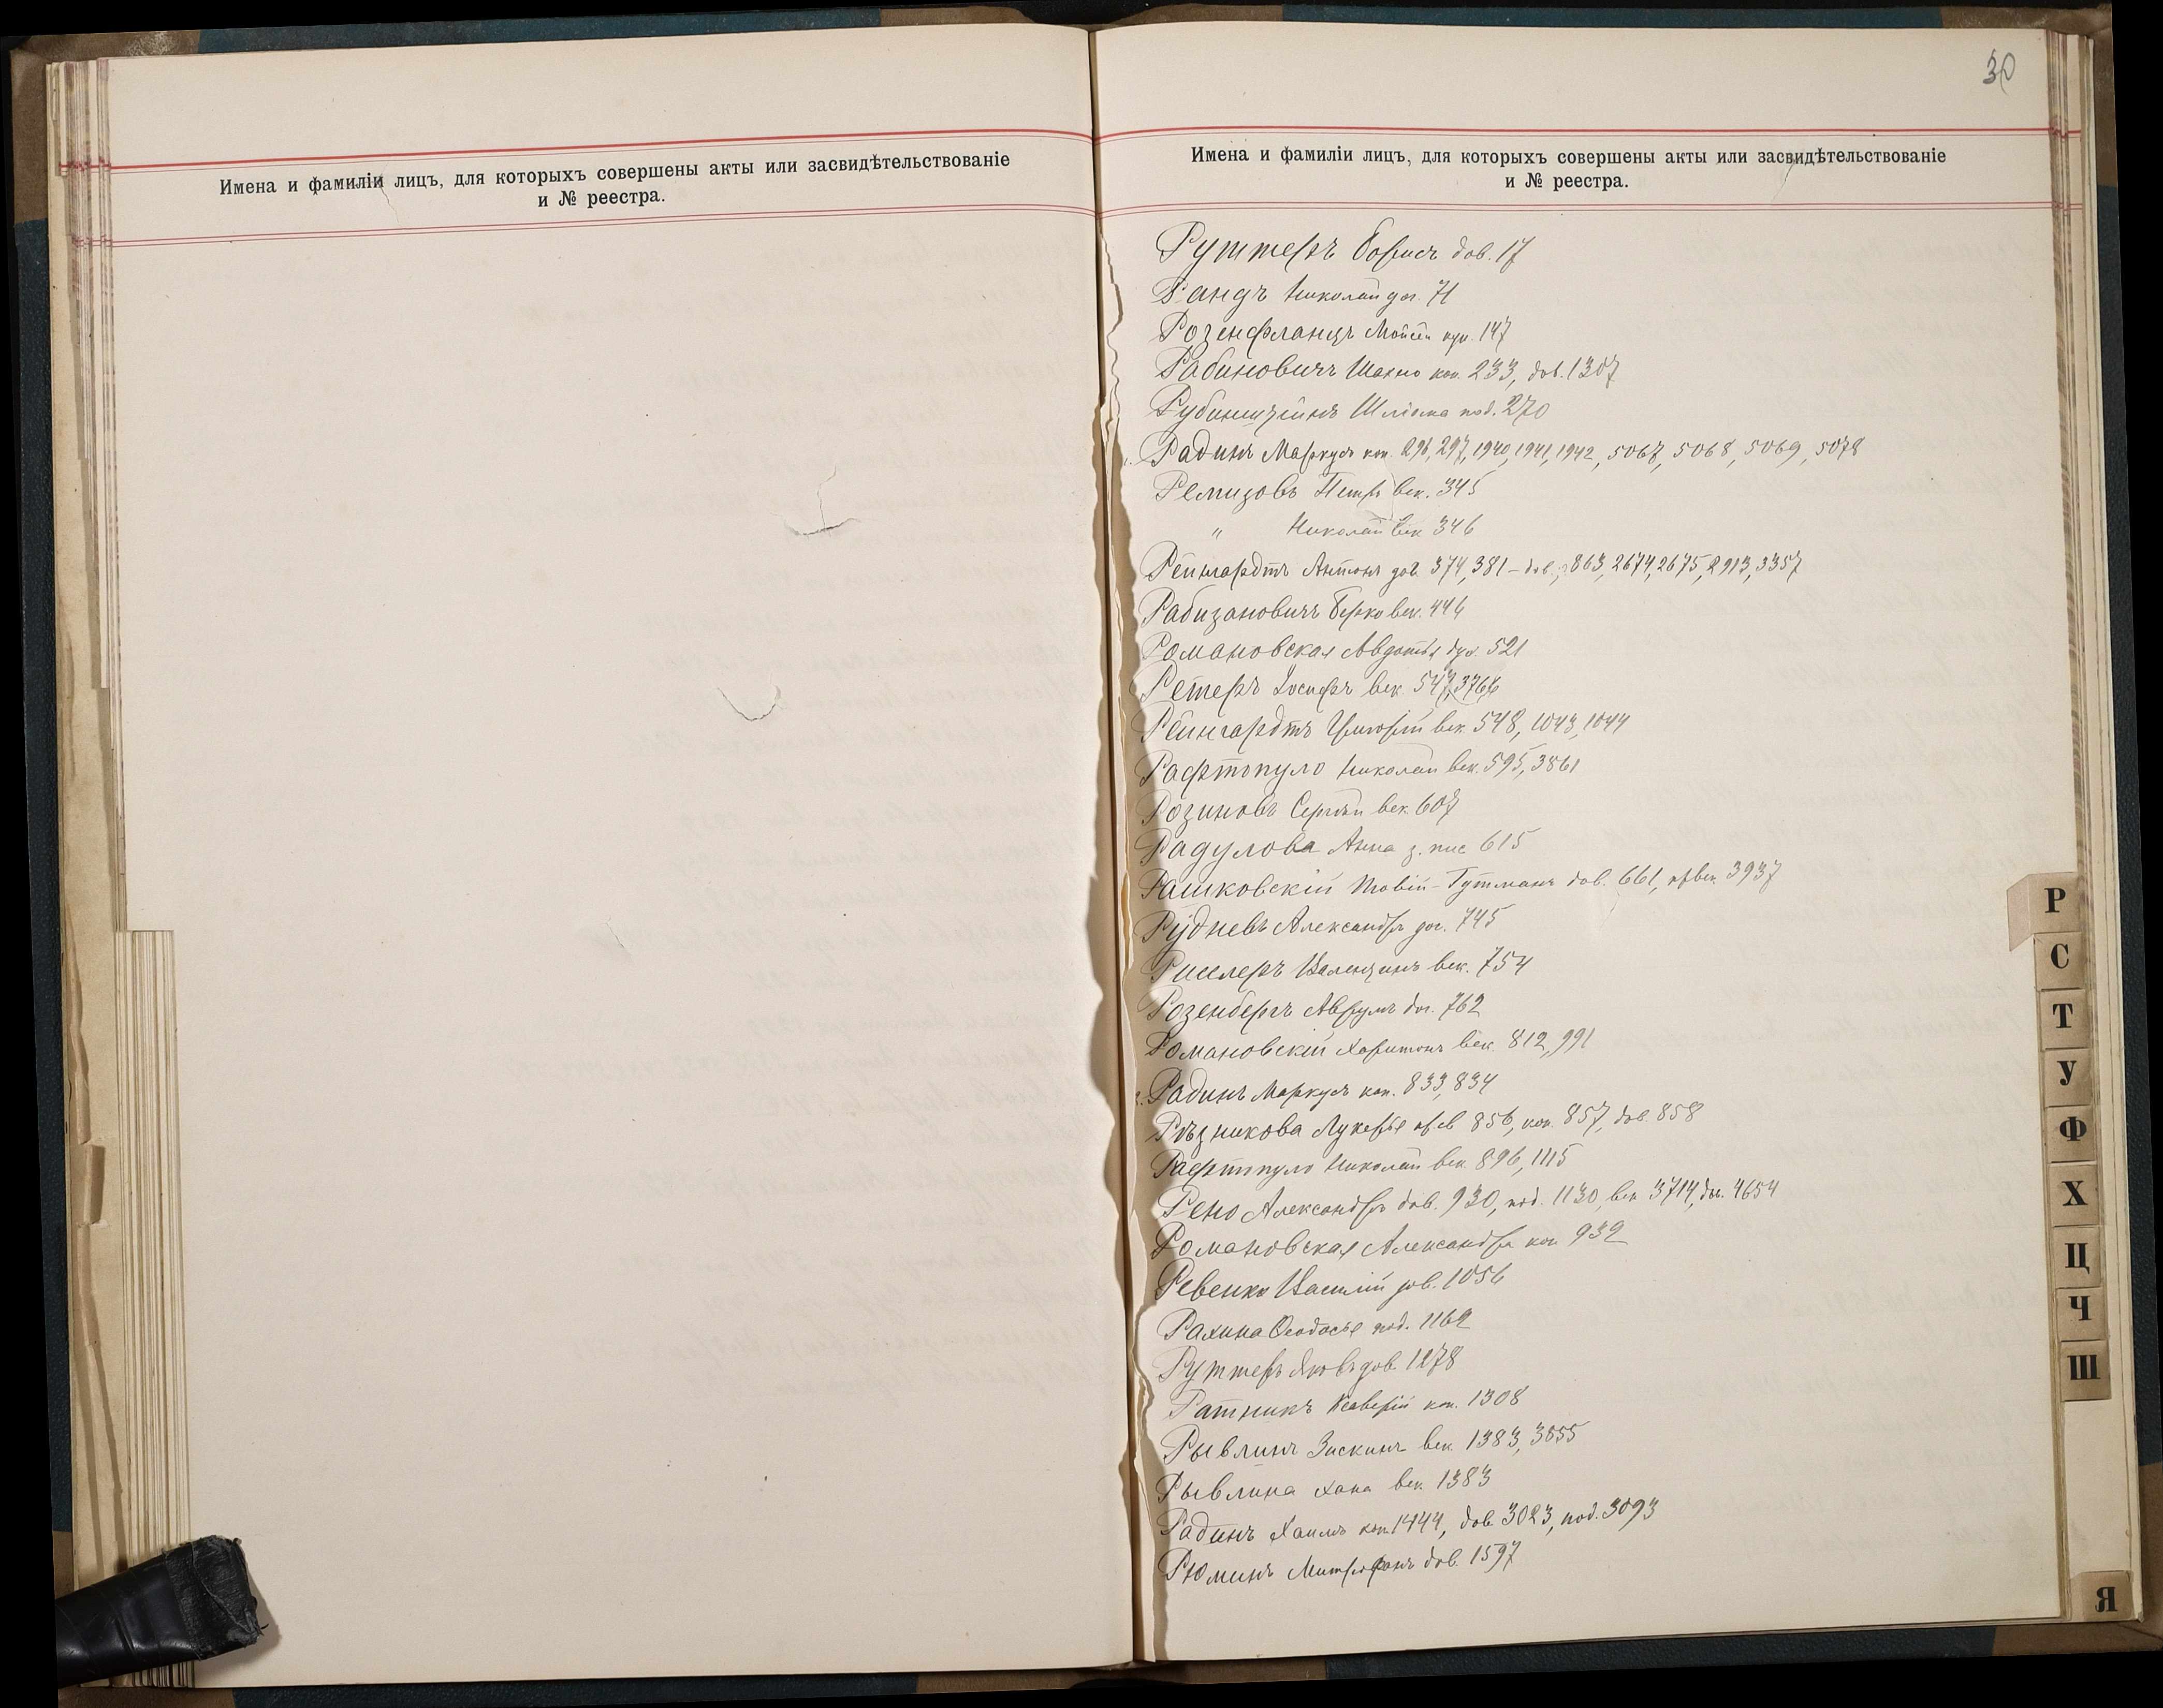 Имена и фамиліи лицъ, для которыхъ совершены акты или засвидѣтельствованіе
и № реестра.
30
Имена и фамиліи лицъ, для которыхъ совершены акты или засвидѣтельствованіе
и № реестра.
Руттеръ Борисъ дов. 17
Рандъ Николай дог. 71
Розенфланцъ Мойсей 147
Рабиновичъ Шахно коп. 233, дов. 1307
Рубинштейнъ Шлема под. 270
Радинъ Маркусъ коп. 296, 297, 1940, 1941, 1942, 5067, 5068, 5069, 5078
Ремизовъ Петръ век. 345
" Николай век 346
Рейнгардтъ Антонъ дов. 374, 381 – дов., 863, 2674, 2675, 2913, 3357
Рабизановичъ Берко век. 446
Романовская Авдотья дух. 521
Ретеръ Іосифъ век. 547, 3766
Рейнгардтъ Григорій век. 548, 1043, 1044
Рафтопуло Николай век. 595, 3861
Розиновъ Сергѣй век. 607
Радулова Анна з. пис 615
Рашковскій Товій-Гутманъ дов. 661, 3937
Рудневъ Александръ дог. 745
Рислеръ Валентинъ век. 754
Розенбергъ Аврумъ дог. 762
Романовскій Харитонъ век. 812, 991
Радинъ Маркусъ коп. 833, 834
Рѣзникова Лукерья 856, коп. 857, дов. 858
Рафтопуло Николай век. 896, 1115
Рено Александръ дов. 930, под. 1130, век 3714, дог. 4654
Романовская Александра коп 932
Ревенко Василій дов. 1056
Рахина Ѳеодосья под. 1162
Руттеръ Яковъ дов. 1278
Ратникъ Ксаверій коп. 1308
Рывлинъ Зискинъ век 1383, 3055
Рывлина Хана век 1383
Радинъ Хаимъ коп. 1444, дов. 3023, под. 3093
Рюминъ Митрофанъ дов. 1597
Р
С
Т
У
Ф
Х
Ц
Ч
Ш
Я